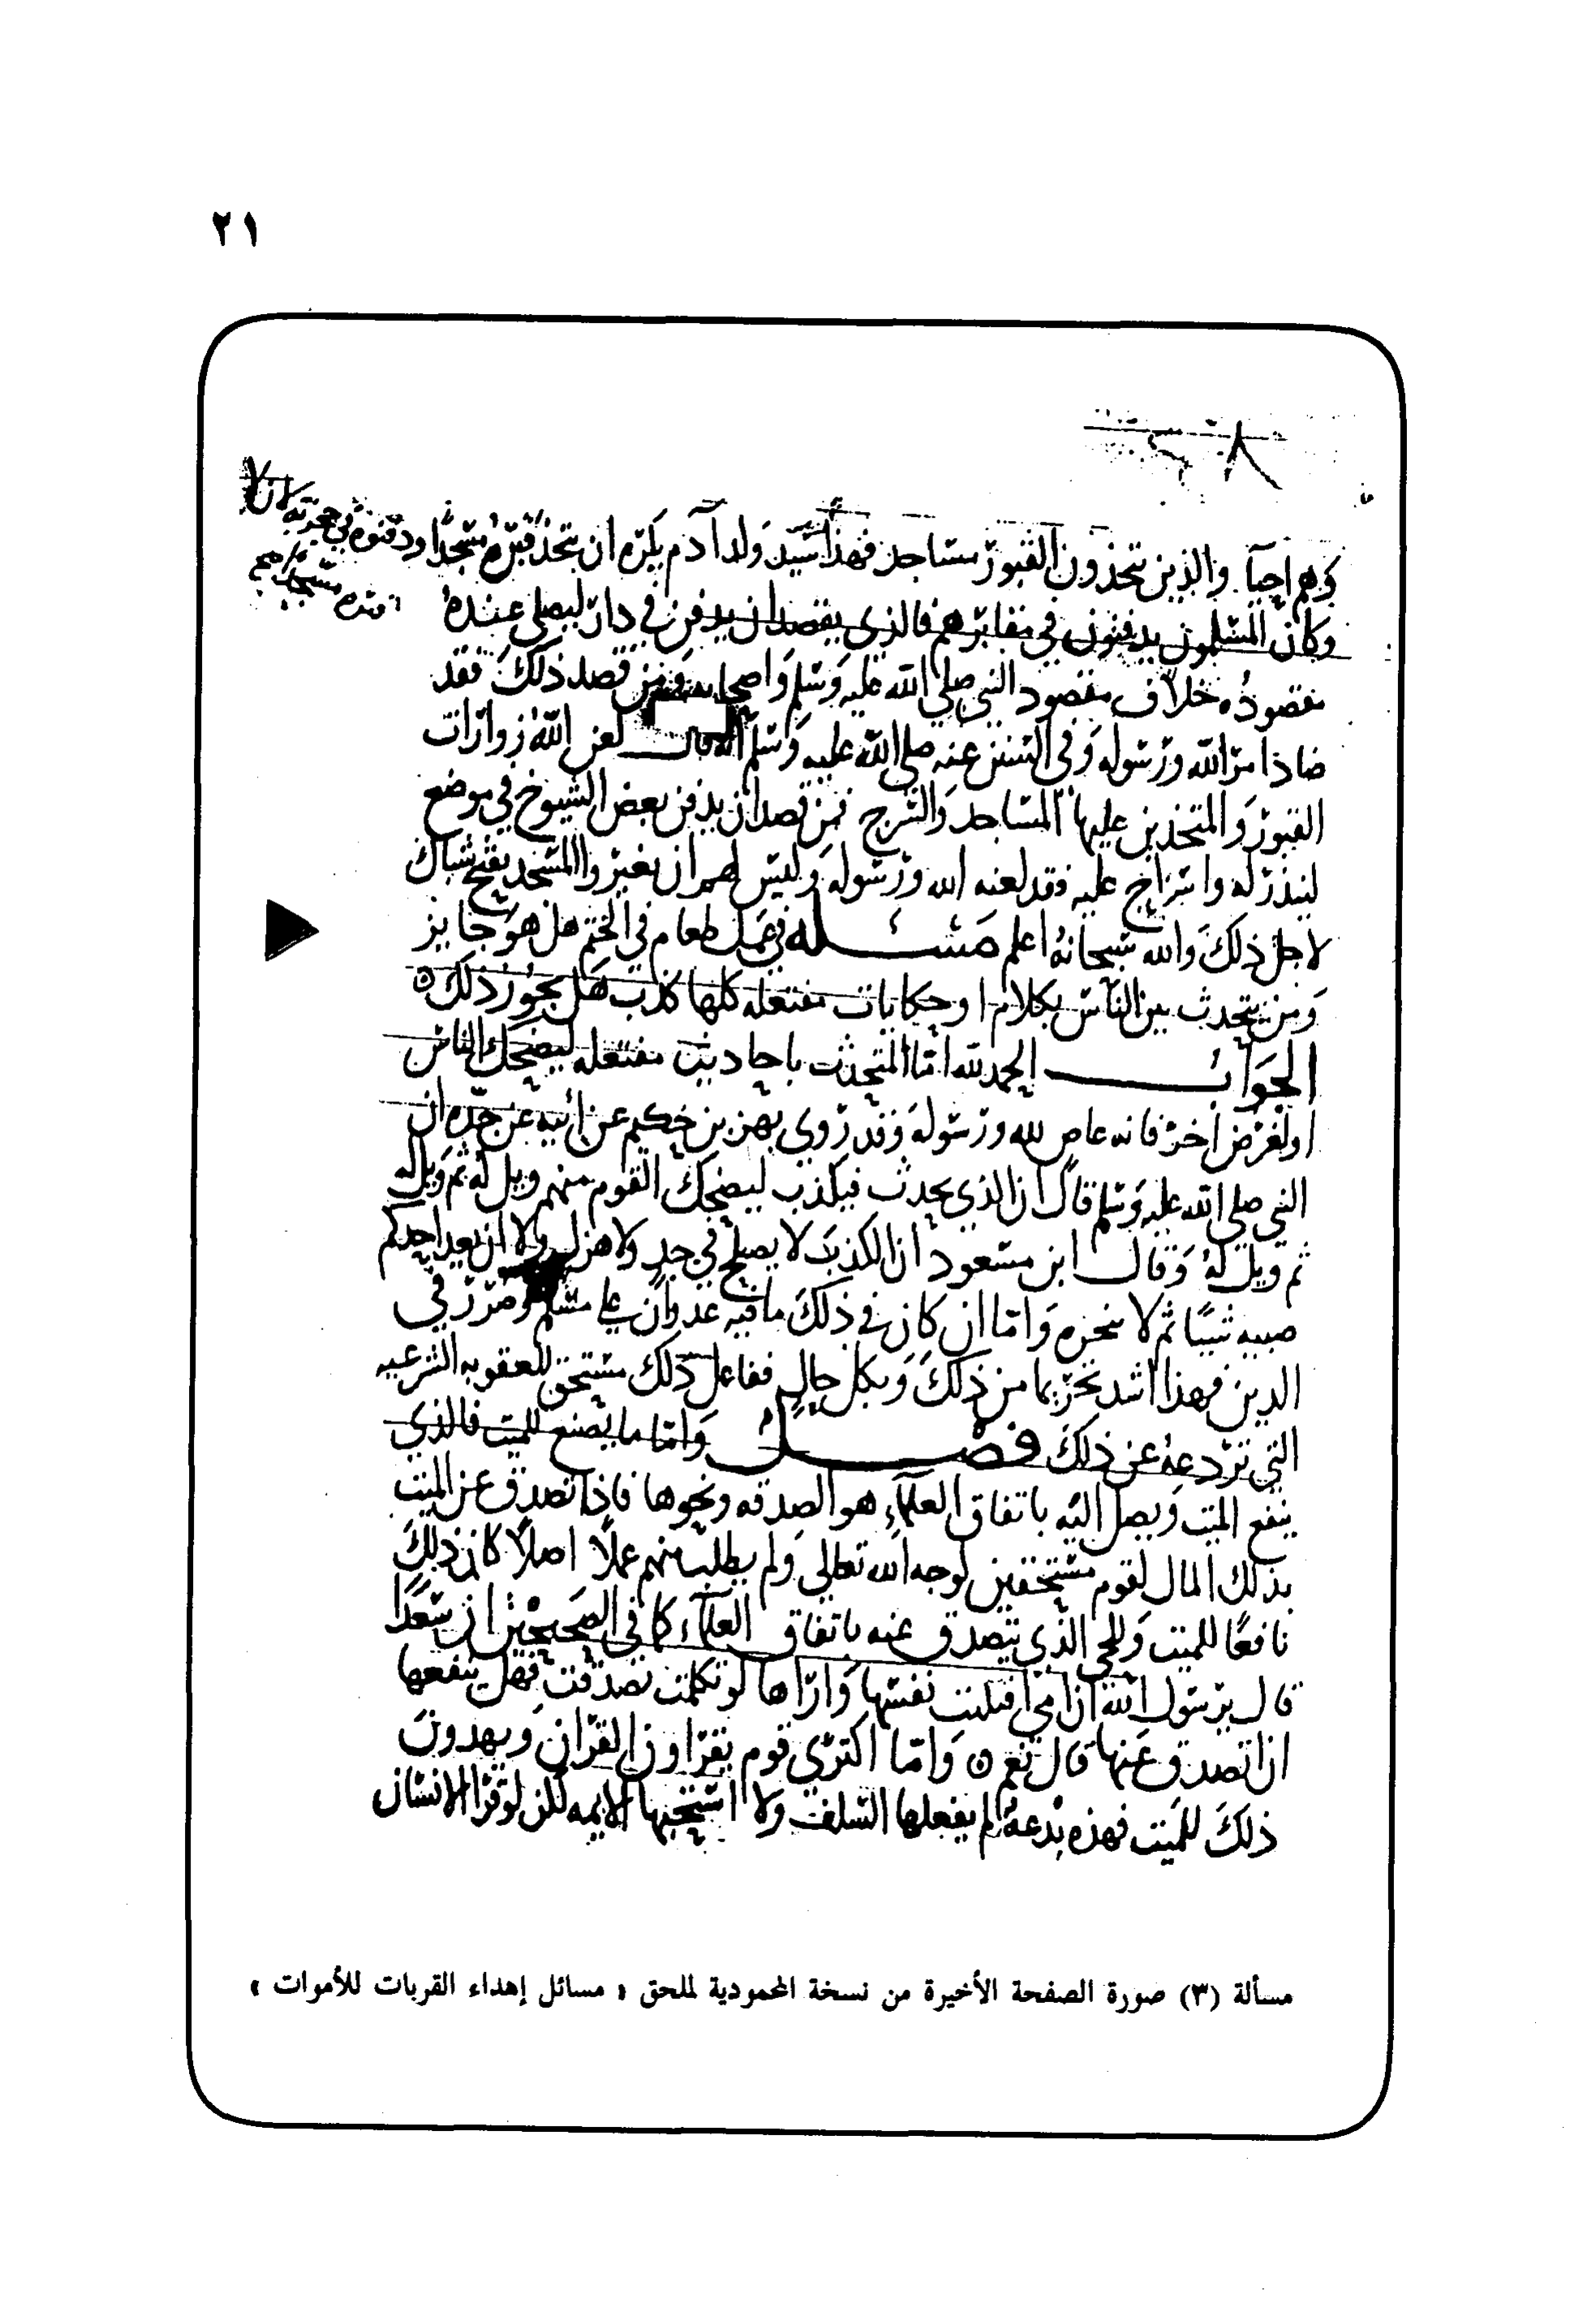 ٢١
وهم احيآ والذين يتخذون القبور مساجد فهذا سيد ولد آدم يكره ان يتخذ قبره مسجدا ودفنوه في حجرته لان لا
يتخذ قبره مسجدا
وكان المسلمون يدفنون في مقابرهم فالذي يقصد ان يدفن في دار ليصلي عنده
مقصوده خلاف مقصود النبي صلى الله عليه وسلم واصحابه ومن قصد ذلك فقد
ضاد امر الله ورسوله وفي السنن عنه صلى الله عليه وسلم لعن الله زوارات
القبور والمتخذين عليها المساجد والسرج فمن قصد ان يدفن بعض الشيوخ في موضع
لينذر له واسراج عليه فقد لعنه الله ورسوله وليس لهم ان يغيروا المسجد بفتح شباك
لاجل ذلك والله سبحانه اعلم مسئله في عمل طعام في الختم هل هو جايز
ومن يتحدث بين الناس بكلام او حكايات مفتعله كلها كذب هل يجوز ذلك ه
الجواب الحمد لله اما المتحدث باحاديث مفتعله ليضحك الناس
او لغرض اخر فانه عاص لله ورسوله وقد روى بهز بن حكيم عن ابيه عن جده ان
النبي صلى الله عليه وسلم قال ان الذي يحدث فيكذب ليضحك القوم منهم ويل له ثم ويل له
ثم ويل له وقال ابن مسعود ان الكذب لا يصلح في جد ولا هزل ولا ان يعد احدكم
صبيه شيئا ثم لا ينجزه واما ان كان في ذلك ما فيه عدوان على مسلم وضرر في
الدين فهذا اشد تحريما من ذلك وبكل حال ففاعل ذلك مستحق للعقوبه الشرعيه
التي تردعه عن ذلك فصل واما ما يصنع للميت فالذي
ينفع الميت ويصل اليه باتفاق العلمآء هو الصدقه ونحوها فاذا تصدق عن الميت
بذلك المال لقوم مستحقين لوجه الله تعالى ولم يطلب منهم عملا اصلا كان ذلك
نافعا للميت وللحي الذي يتصدق عنه باتفاق العلمآء كما في الصحيحين ان سعدا
قال يرسول الله ان امي افتلتت نفسها واراها لو تكلمت تصدقت فهل ينفعها
ان اتصدق عنها قال نعم ه واما اكتري قوم يقراون القران ويهدون
ذلك للميت فهذه بدعة لم يفعلها السلف ولا استحبها الايمه لكن لو قرا الانسان
مسألة (٣) صورة الصفحة الأخيرة من نسخة المحمودية لملحق « مسائل إهداء القربات للأموات »